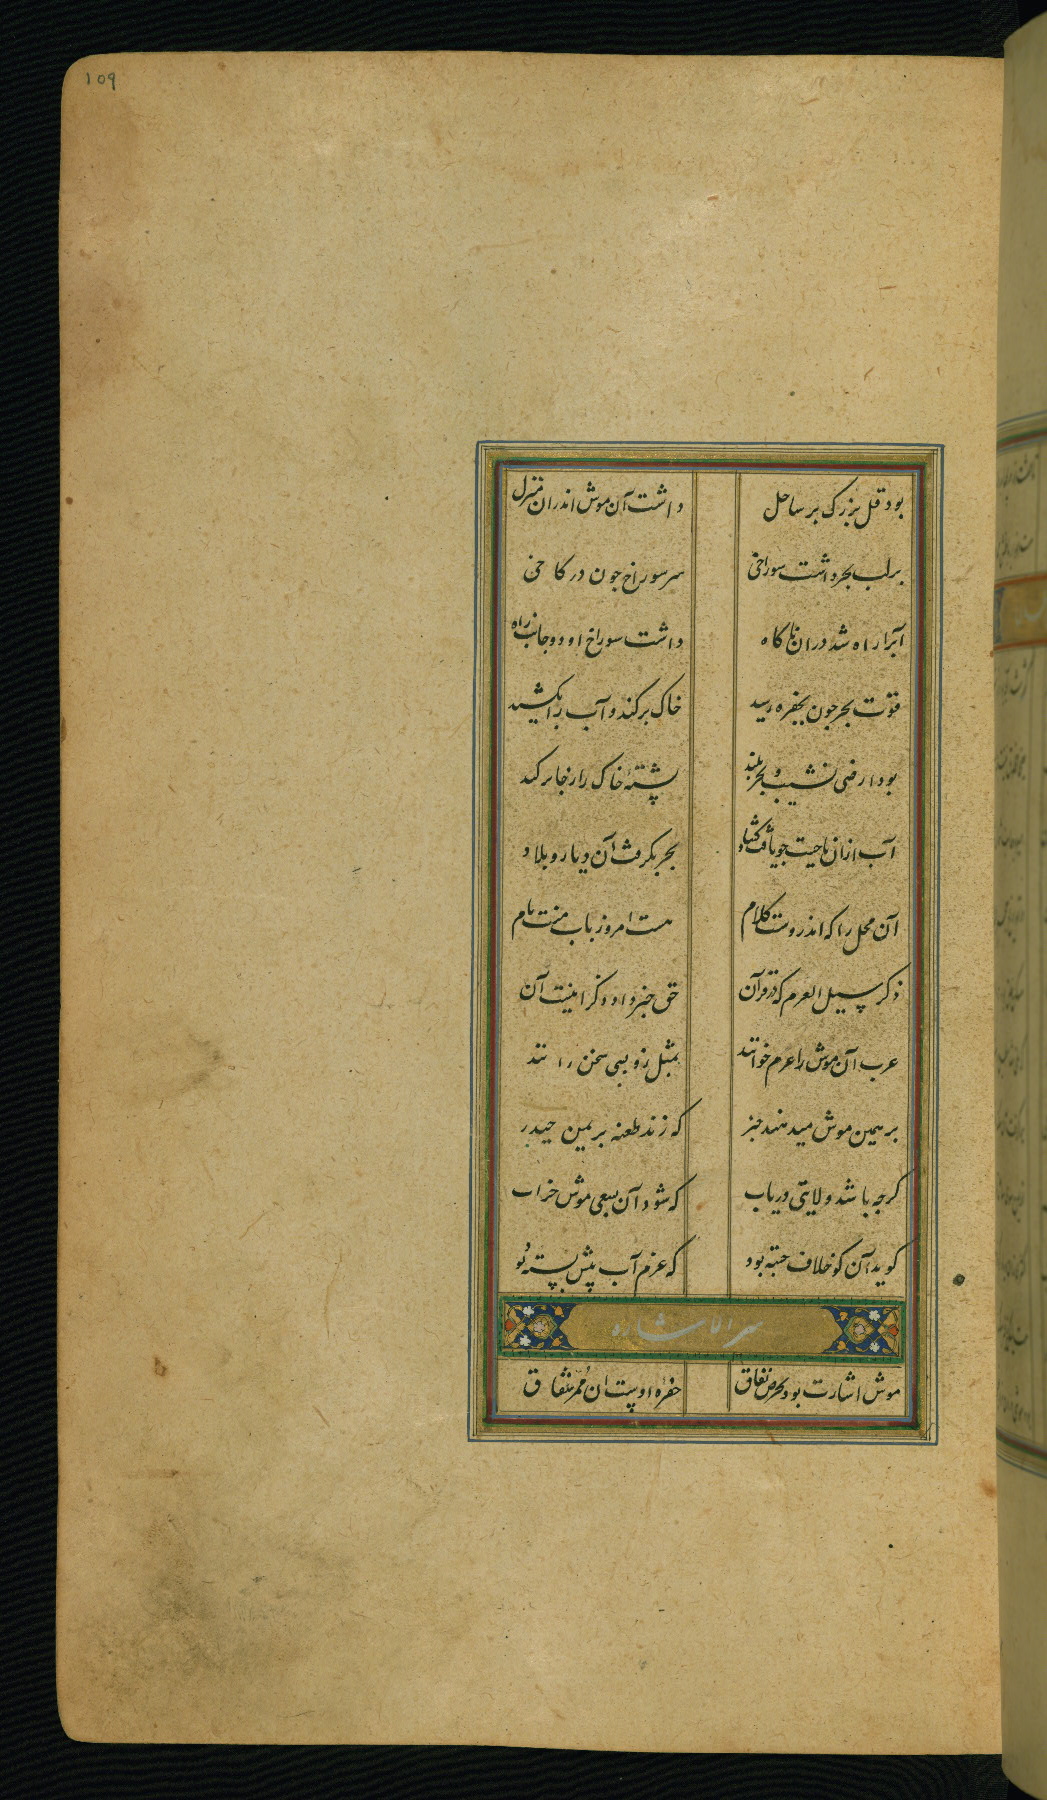 ۱۵۹
بود قل بزرگ بر ساحل
داشت آن موش اندران منزل
برلب بحر داشت سوراخی
سر سوراخ جون در کاخی
آبرا راه شد دران ناکاه
داشت سوراخ او دو جانب راه
قوت بحر جون بحفره رسید
خاک برکند و آب را بکشید
بود ارضی نشیب و بحر بلند
پشتهٔ خاک را ز جا برکند
آب ازان ناحیت جو یافت کشاد
بحر بکرفت آن دیار و بلاد
آن محل را که اندروست کلام
هست امروز باب منت نام
ذکر سیل العرم که در قرآن
حق خبر داد ذکر اینست آن
عرب آن موش را عرم خوانند
بمثل زو بسی سخن رانند
بر همین موش میدهند خبر
که زند طعنه بر یمین حیدر
کرجه باشد ولایتی دریاب
که شود آن بسعی موش خراب
کوید آن کو خلاف
که عرم آب پیش پسته بود
سر الاشاره
موش اشارت بود بحرص نفاق
حفره او